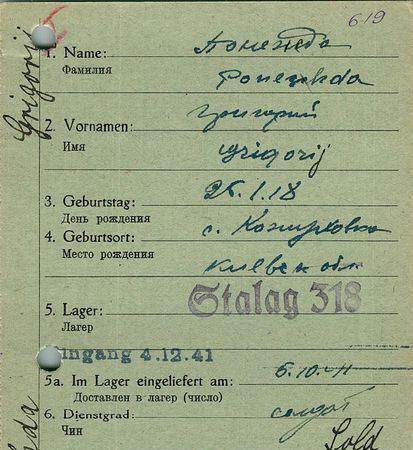 619
1. Name: Понежда
Фамилия Ponezhda
2. Vornamen: Григорий
Имя Grigorij
3. Geburtstag: 25.1.18
День рождения
4. Geburtsort: с.
Место рождения Киевск обл
5. Lager: Stalag 318
Лагер
Eingang 4.12.41
5a. Im Lager eingeliefert am: 6.10.41
Доставлен в лагер (число)
6. Dienstgrad: солдат
Чин Sold
Grigorij